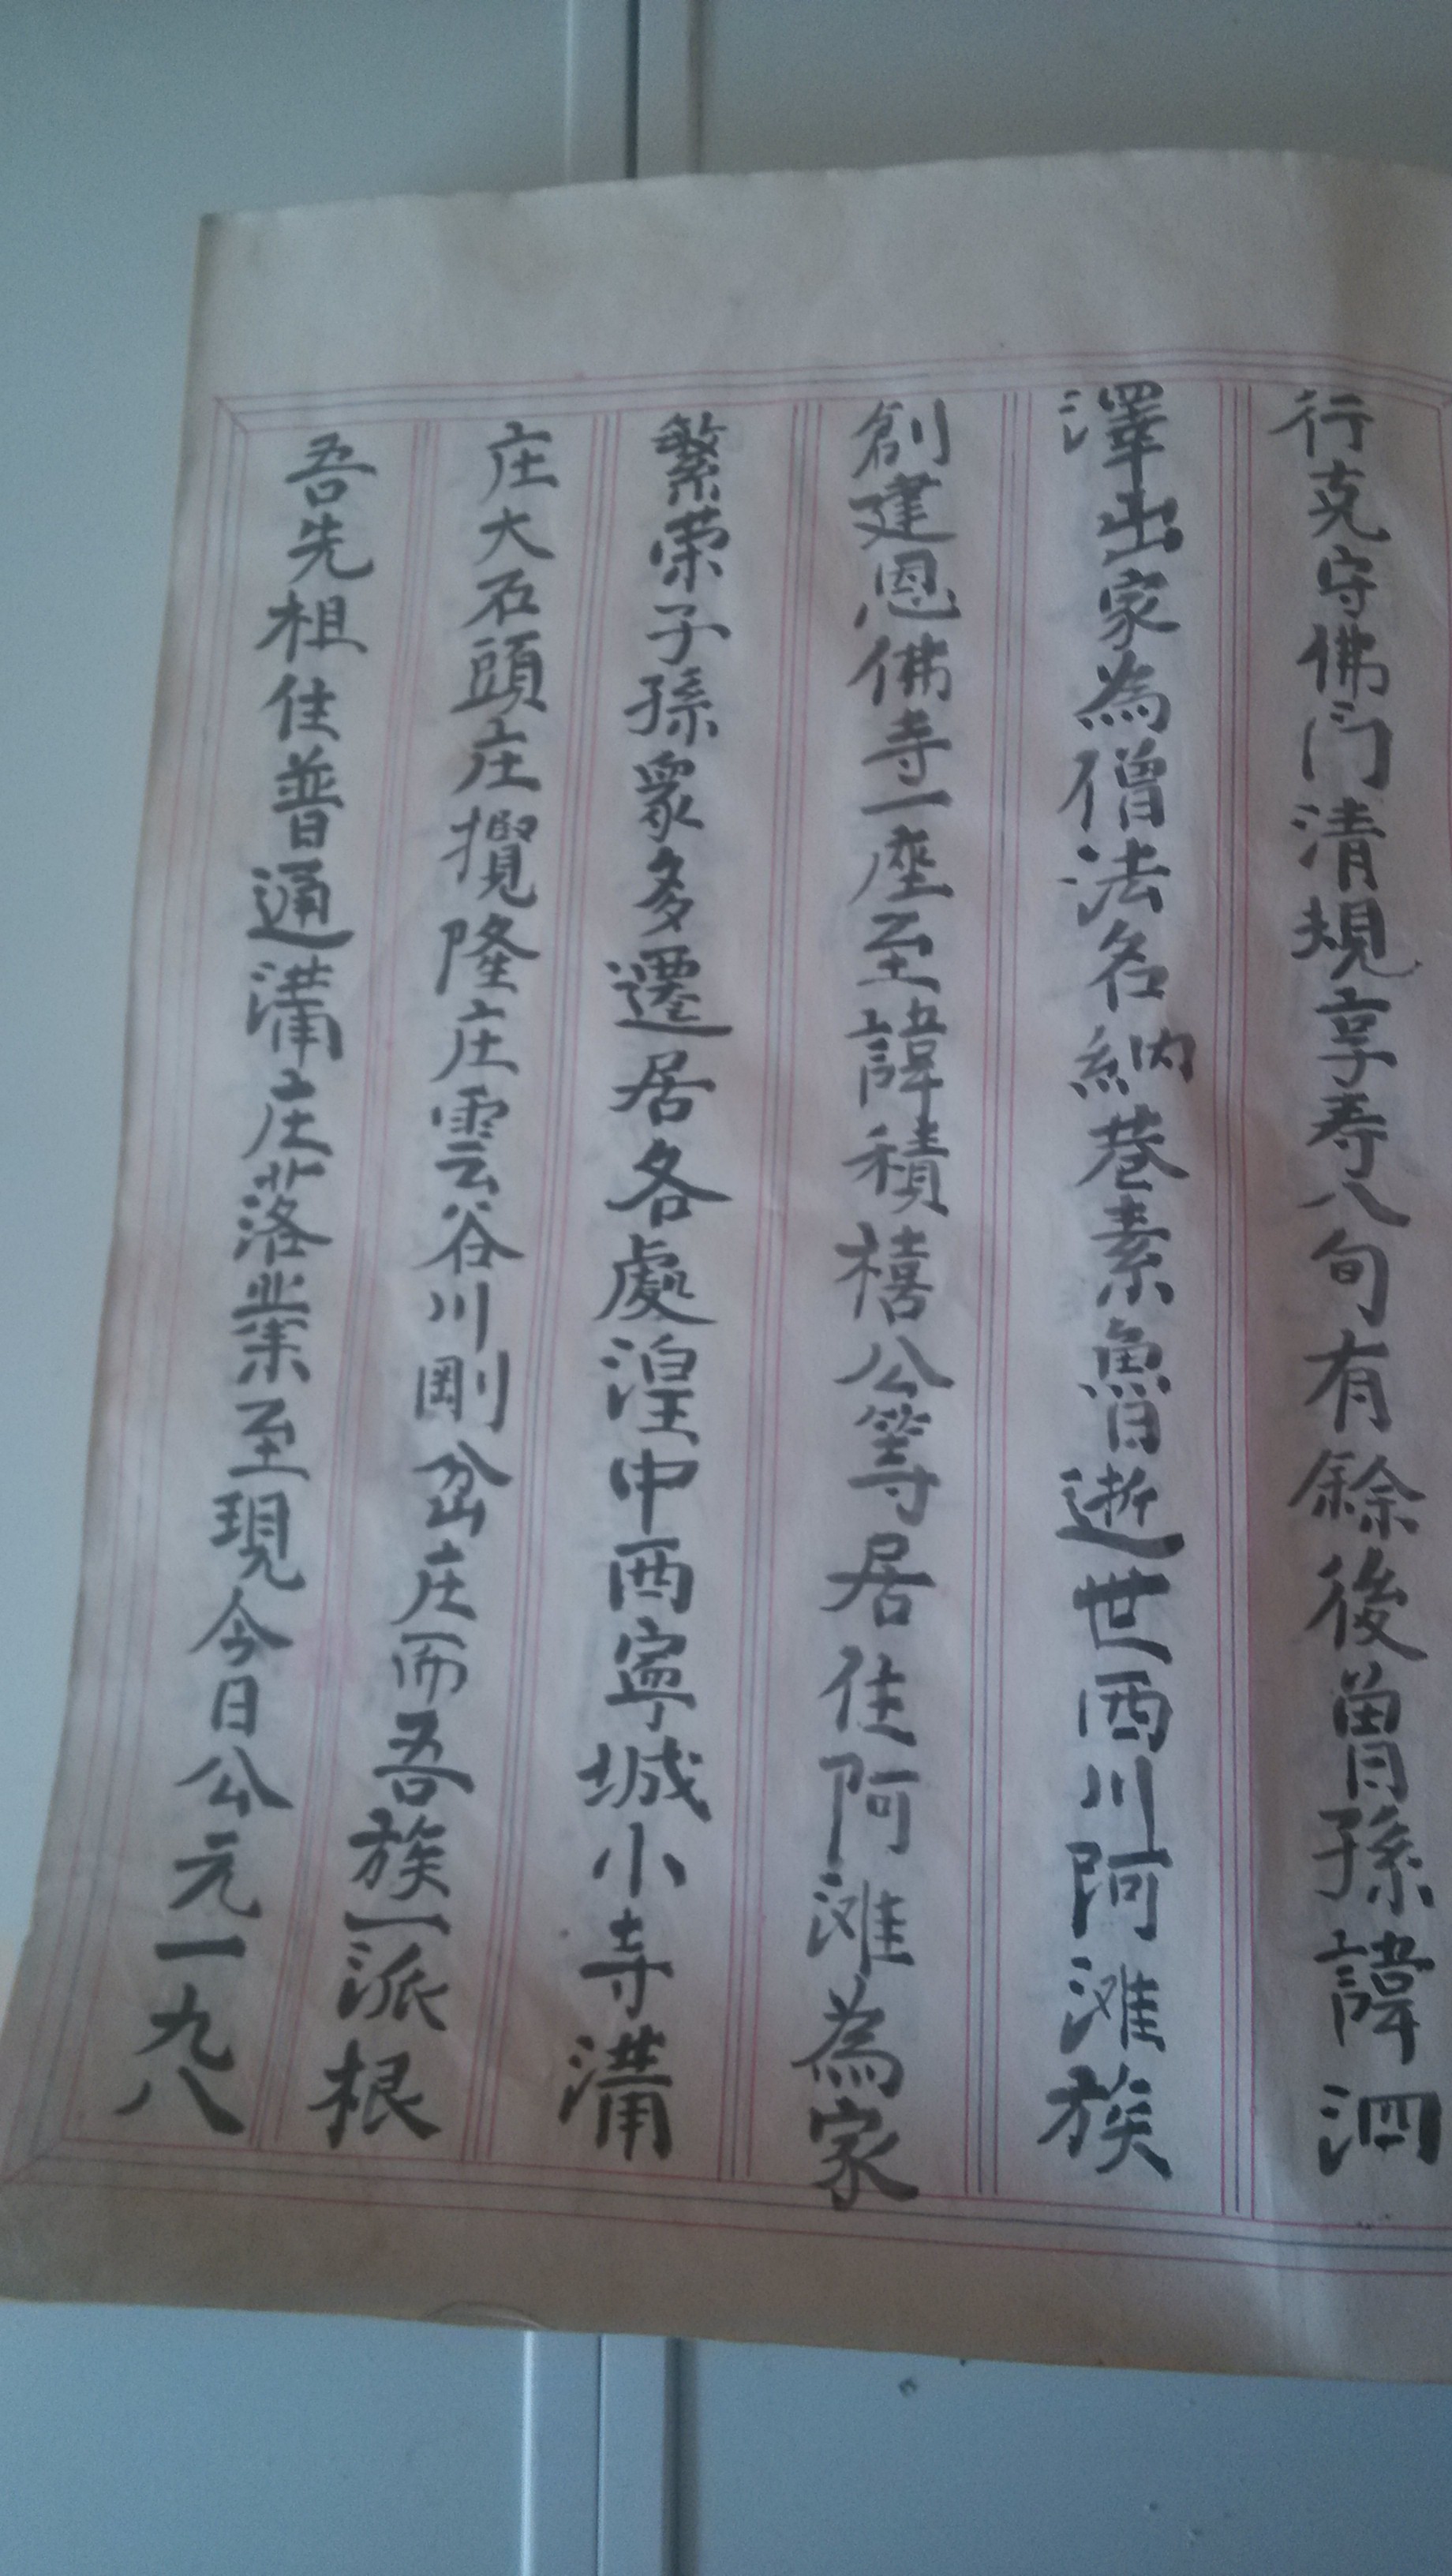 行克守佛门清規享寿八旬有餘後曾孫諱泗
澤出家為僧法名納巷素魯逝世西川阿滩族
創建恩佛寺一座至諱積禧公等居住阿滩為家
繁荣子孫衆多遷居各處湟中西寧城小寺溝
庄大石頭庄攪隆庄雲谷川剛岔庄而吾族一派根
吾先祖住普通溝庄落業至現今日公元一九八